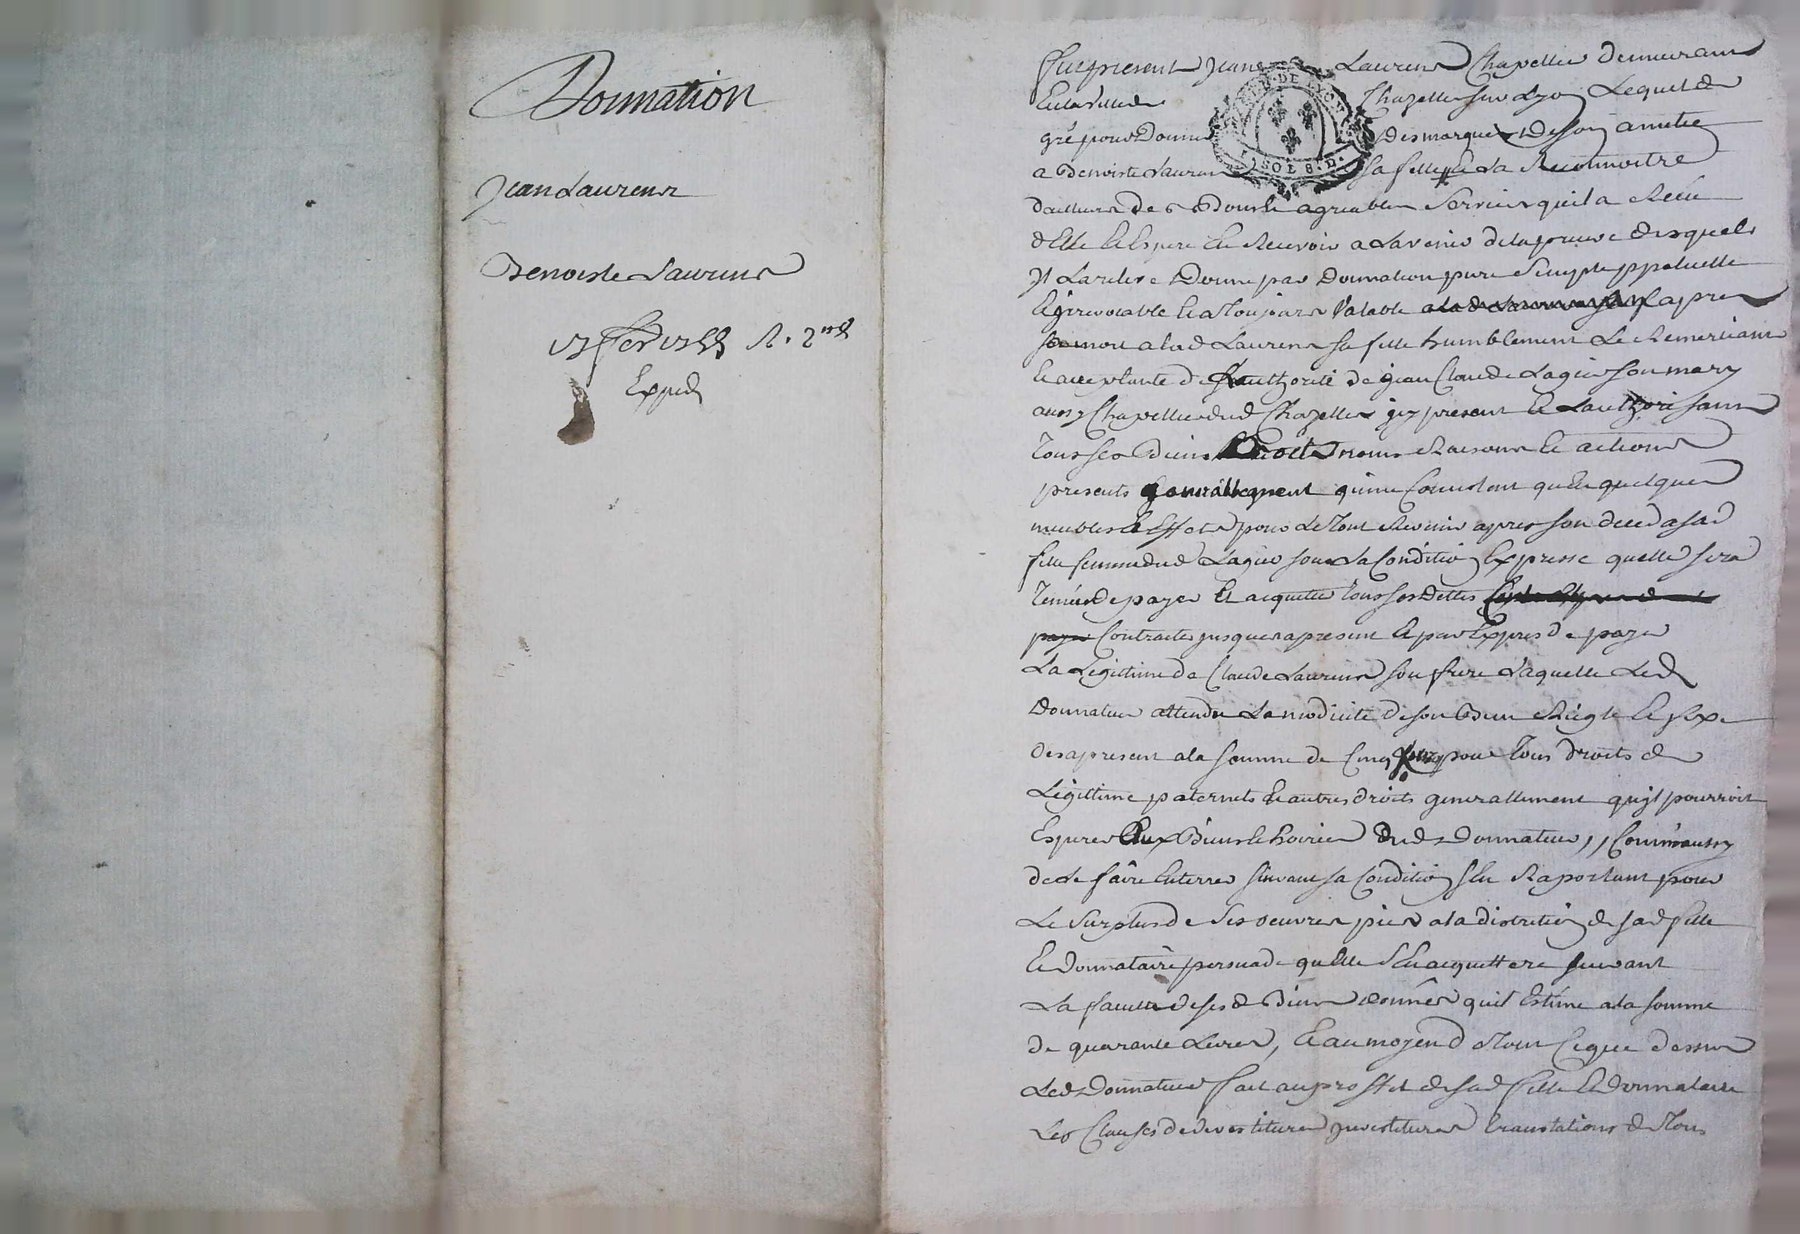 Donnation
Jean Laurens
Benoiste Laurens
Exped
Fut present Jean Laurens Chapellier demeurant
en la ville de Chazelles sur Lyon Lequel de
gré pour donner des marques de son amitié
a Benoiste Laurens sa fille et la Reconnoitre
dailleurs de bons et agreables services quil a Receu
delle et Espere En Recevoir a Lavenir de la preuve desquels
Il La Donne par Donnation pure simple ppetuelle
et irrevocable et a Toujours Valable apres
sa mort a lad Laurens sa fille humblement Le Remerciant
et acceptante de Lauthorité de jean Claude Lagier son mary
aussy Chapellier dud Chazelles icy present et Lauthorisant
Tous ses Biens Droits noms Raisons et actions
presents generallement qui ne Consistent quen quelques
meubles et Effets pour Le Tout Revenir apres son deced a sad
fille femme dud Lagier sous La Condition Expresse quelle sera
Tenue de payer et acquitter Tous ses dettes
Contractes jusques a present et par Expres de payer
La Legittime de Claude Laurens son frere Laquelle Led
Donnateur attendu La modicité de son Bien Regle et fixe
des a present a la somme de Cinq pour Tous droits de
Legittime paternels et autres droits generallement quil pourroit
Esperer aux Biens et hoirie dud Donnateur, Comme aussy
de Le faire Enterrer suivant sa Condition sen Raportant pour
Le Surplus de ses oeuvres pies a la discretion de sad fille
et Donnataire persuadé quelle sen acquittera suivant
La faculté de sesd Biens donnés quil Estime a la somme
de quarante Livres, et au moyen de Tout Ce que dessus
Led Donnateur fait au proffit de sad fille et Donnataire
Les Clauses de devestitures investitures translations de Tous